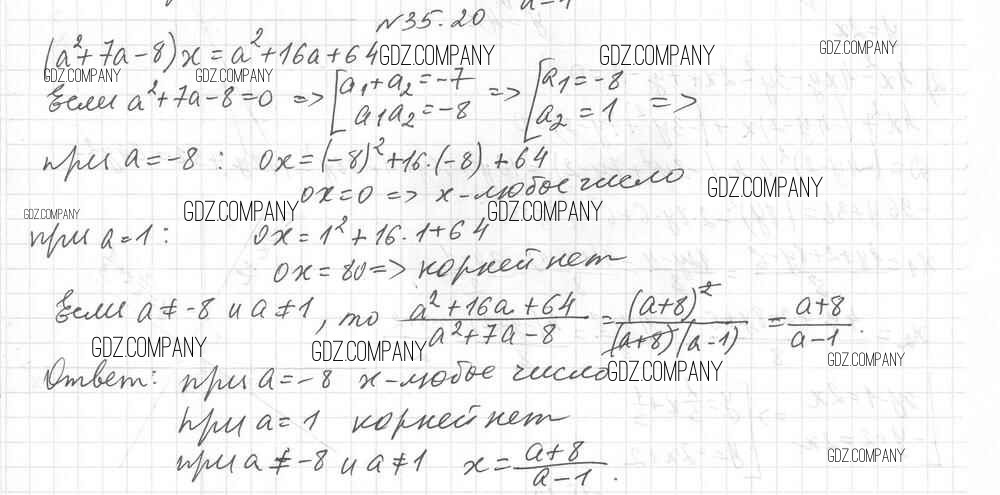 N35.20
(a²+7a-8)x = a²+16a+64
GDZ.COMPANY GDZ.COMPANY GDZ.COMPANY
GDZ.COMPANY GDZ.COMPANY
Если a²+7a-8=0 => [a₁+a₂=-7 => [a₁=-8
a₁a₂=-8 a₂=1 =>
при a=-8: 0x=(-8)²+16·(-8)+64
0x=0 => x-любое число GDZ.COMPANY
GDZ.COMPANY GDZ.COMPANY GDZ.COMPANY
при a=1: 0x=1²+16·1+64
0x=80 => корней нет
Если a≠-8 и a≠1, то (a²+16a+64)/(a²+7a-8) = (a+8)²/((a+8)(a-1)) = (a+8)/(a-1).
GDZ.COMPANY GDZ.COMPANY GDZ.COMPANY
Ответ: при a=-8 x-любое число GDZ.COMPANY
при a=1 корней нет
при a≠-8 и a≠1 x=(a+8)/(a-1). GDZ.COMPANY